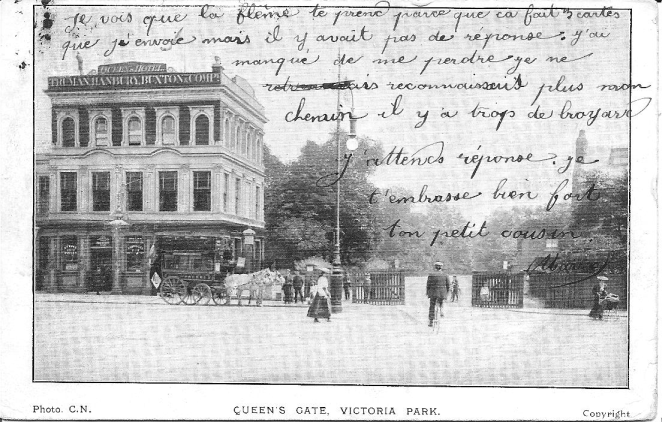 Je vois que la flème te prend parce que ca fait 3 cartes
que j'envoie mais il y avait pas de réponse. j'ai
manqué de me perdre je ne
reconnaissait plus mon
chemin il y a trop de broyard
j'attends réponse. je
t'embrasse bien fort
ton petit cousin
QUEEN'S HOTEL
TRUMAN, HANBURY, BUXTON & COMPY
Photo. C.N.
QUEEN'S GATE, VICTORIA PARK.
Copyright